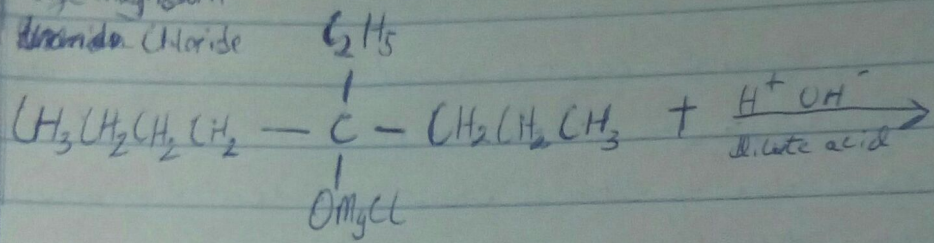 Chloride
C2H5
CH3CH2CH2CH2 — C — CH2CH2CH3 + H+ OH-
dilute acid
OMgCl